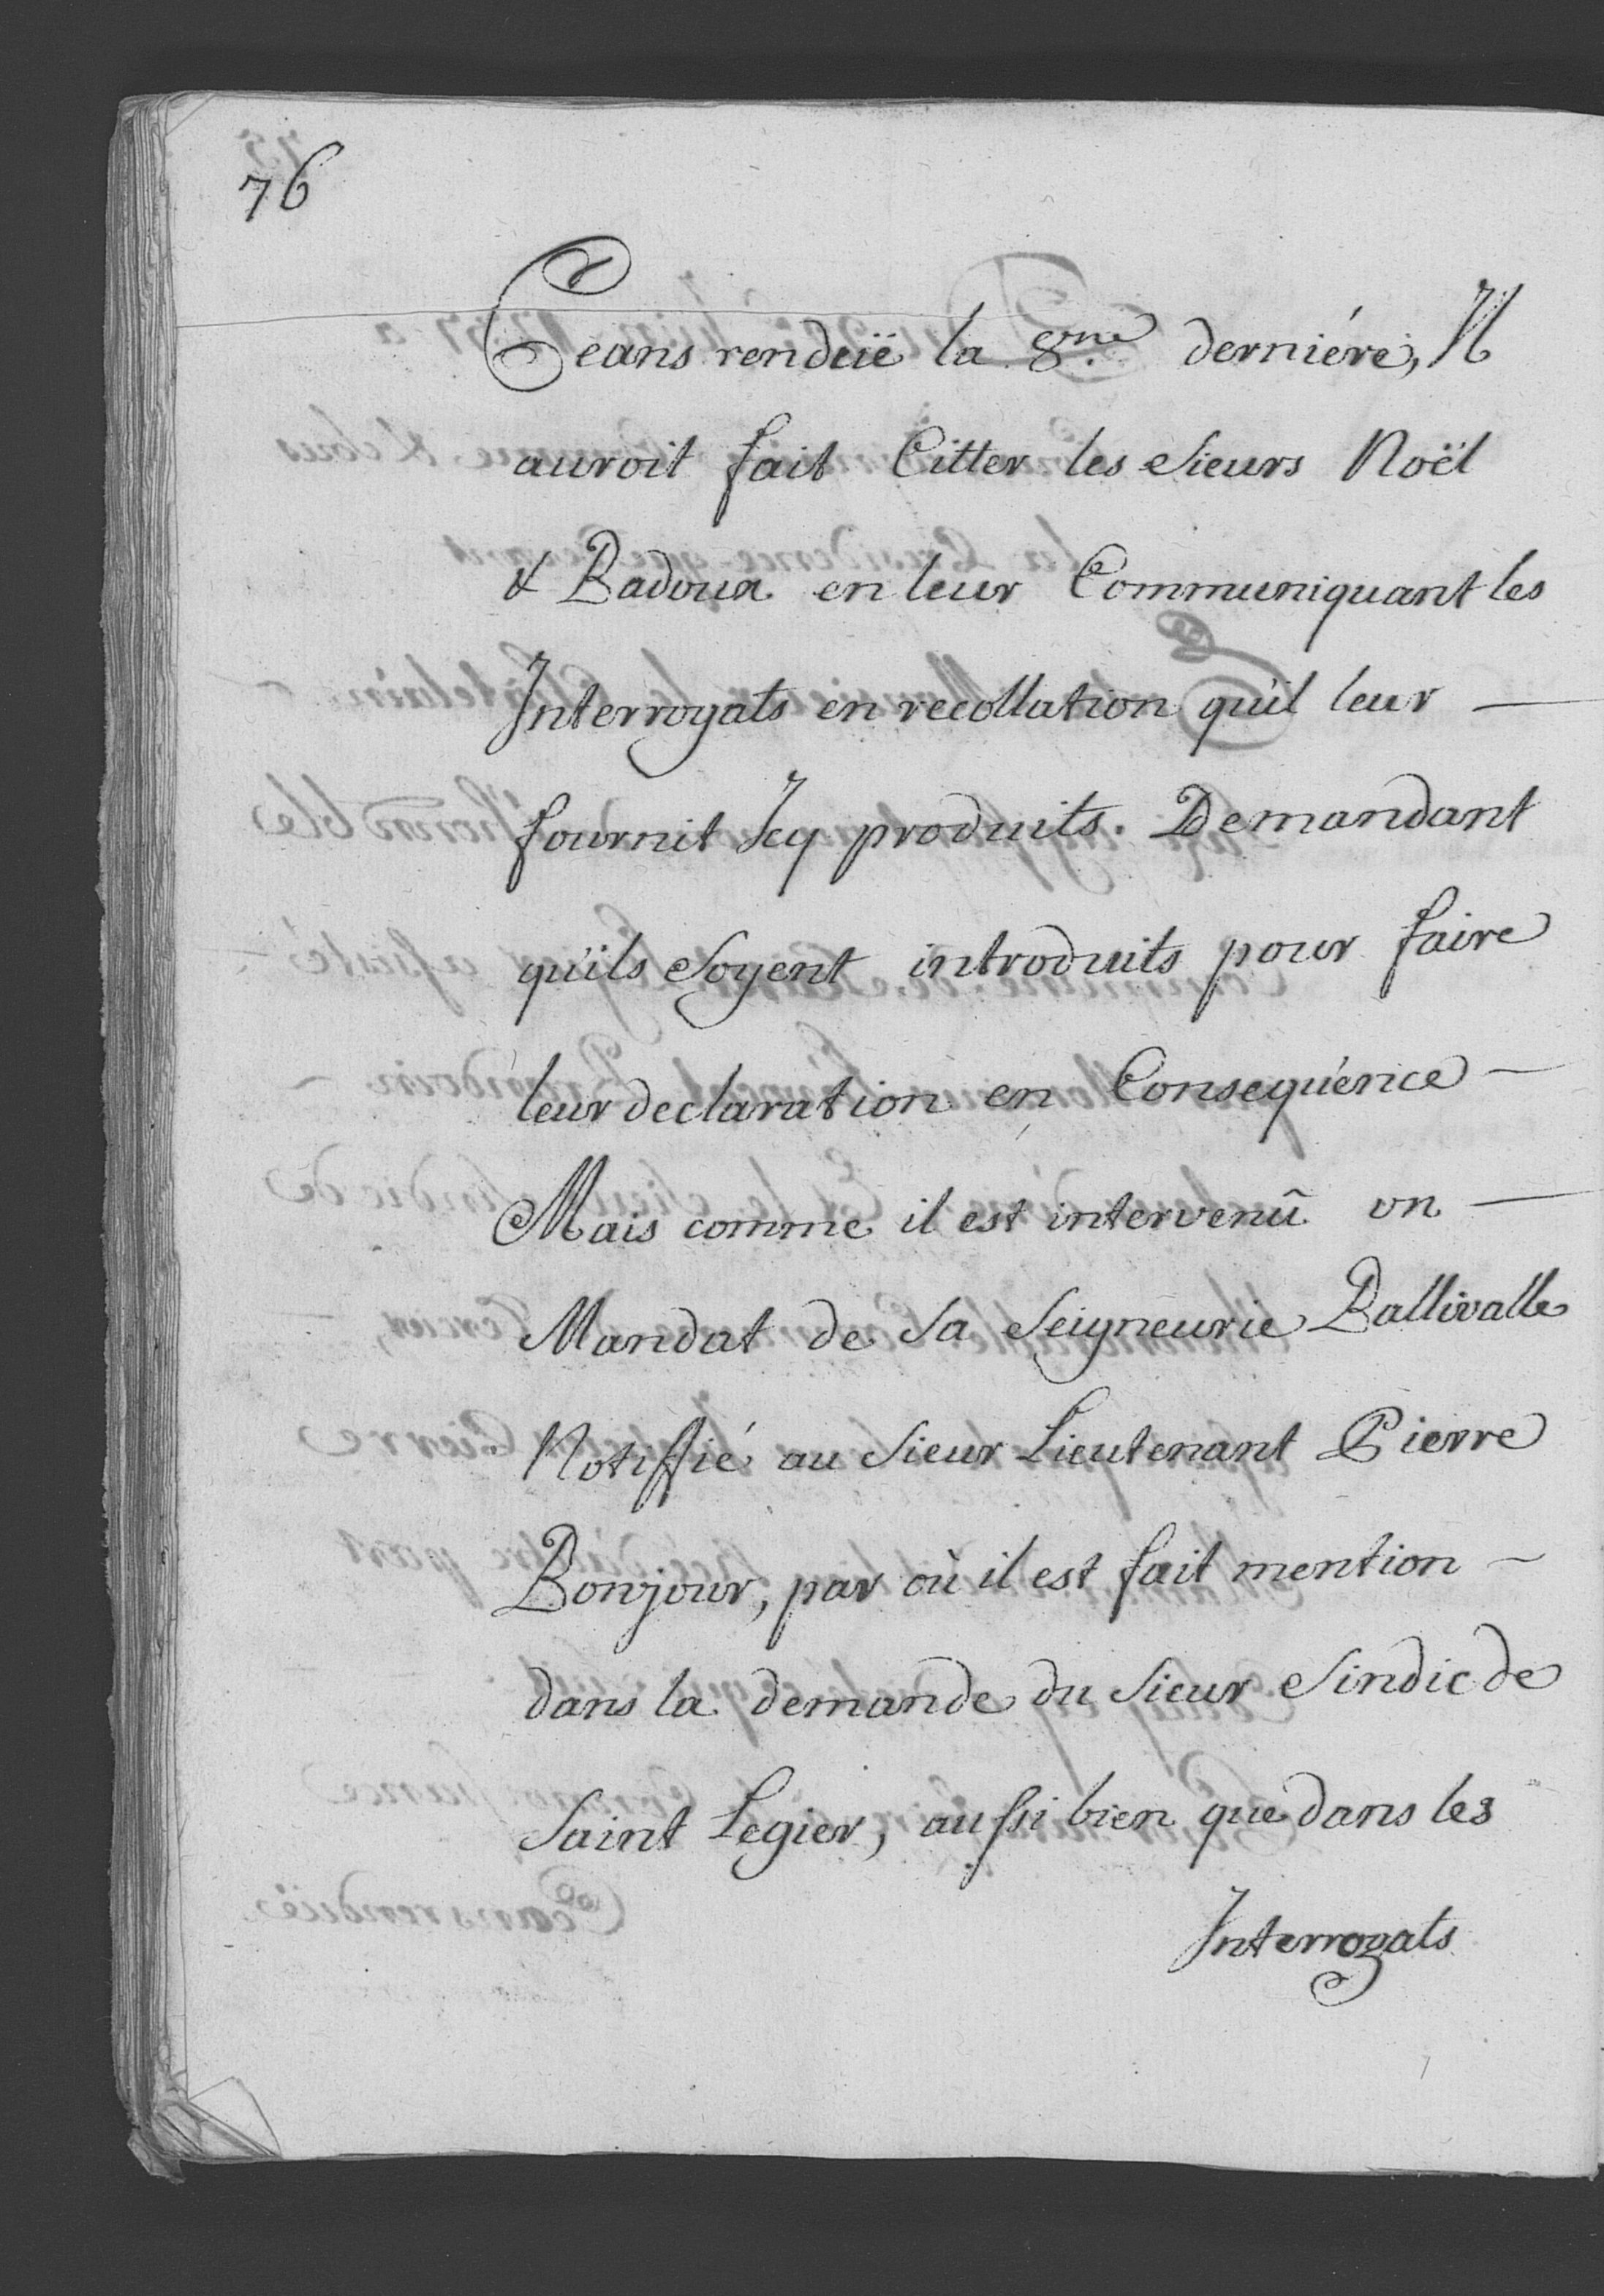 76
Ceans renduë la 8me derniére, Il
auroit fait Citter les Sieurs Noël
& Badoux en leur Communiquant les
Interrogats en recollation qu'il leur
fournit Icy produits. Demandant
qu'ils Soyent introduits pour faire
leur declaration en Consequénce
Mais comme il est intervenû un
Mandat de Sa Seigneurie Ballivalle
Notiffié au Sieur Lieutenant Pierre
Bonjour, par où il est fait mention
dans la demande du Sieur Sindic de
Saint Legier, aussi bien que dans les
Interrogats